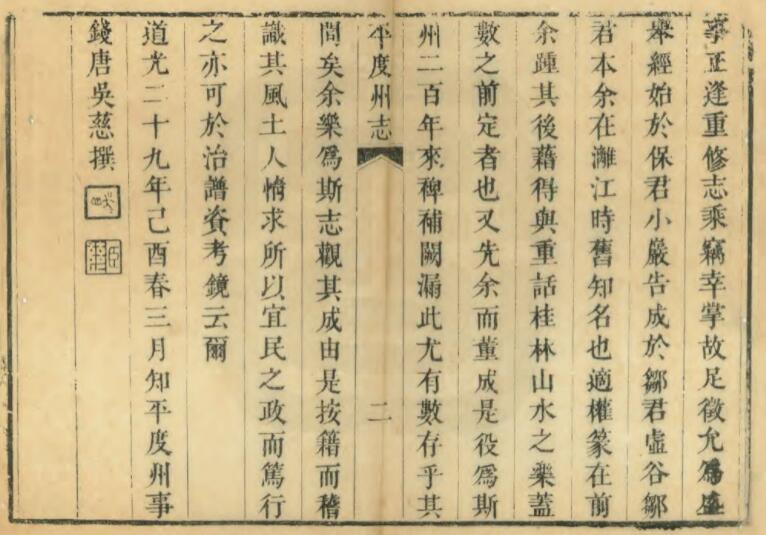 事正逢重修志乘竊幸掌故足徵允為盛
舉經始於保君小嚴告成於鄒君虛谷鄒
君本余在灕江時舊知名也適權篆在前
余踵其後藉得與重話桂林山水之樂蓋
數之前定者也又先余而董成是役爲斯
州二百年來稗補闕漏此尤有數存乎其
平度州志
二
間矣余樂爲斯志觀其成由是按籍而稽
識其風土人情求所以宜民之政而篤行
之亦可於治譜資考鏡云爾
道光二十九年己酉春三月知平度州事
錢唐吳慈撰